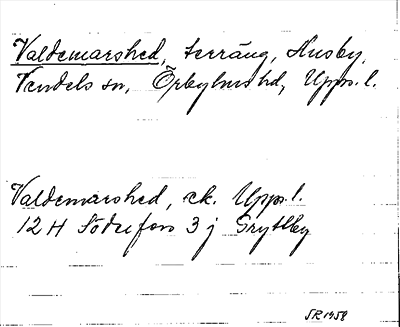 Valdemarshed, terräng, Husby,
Vendels sn, Örbyhus hd, Upps. l.
Valdemarshed, ek. Upps. l.
12 H Söderfors 3 j Grytby
SR 1958